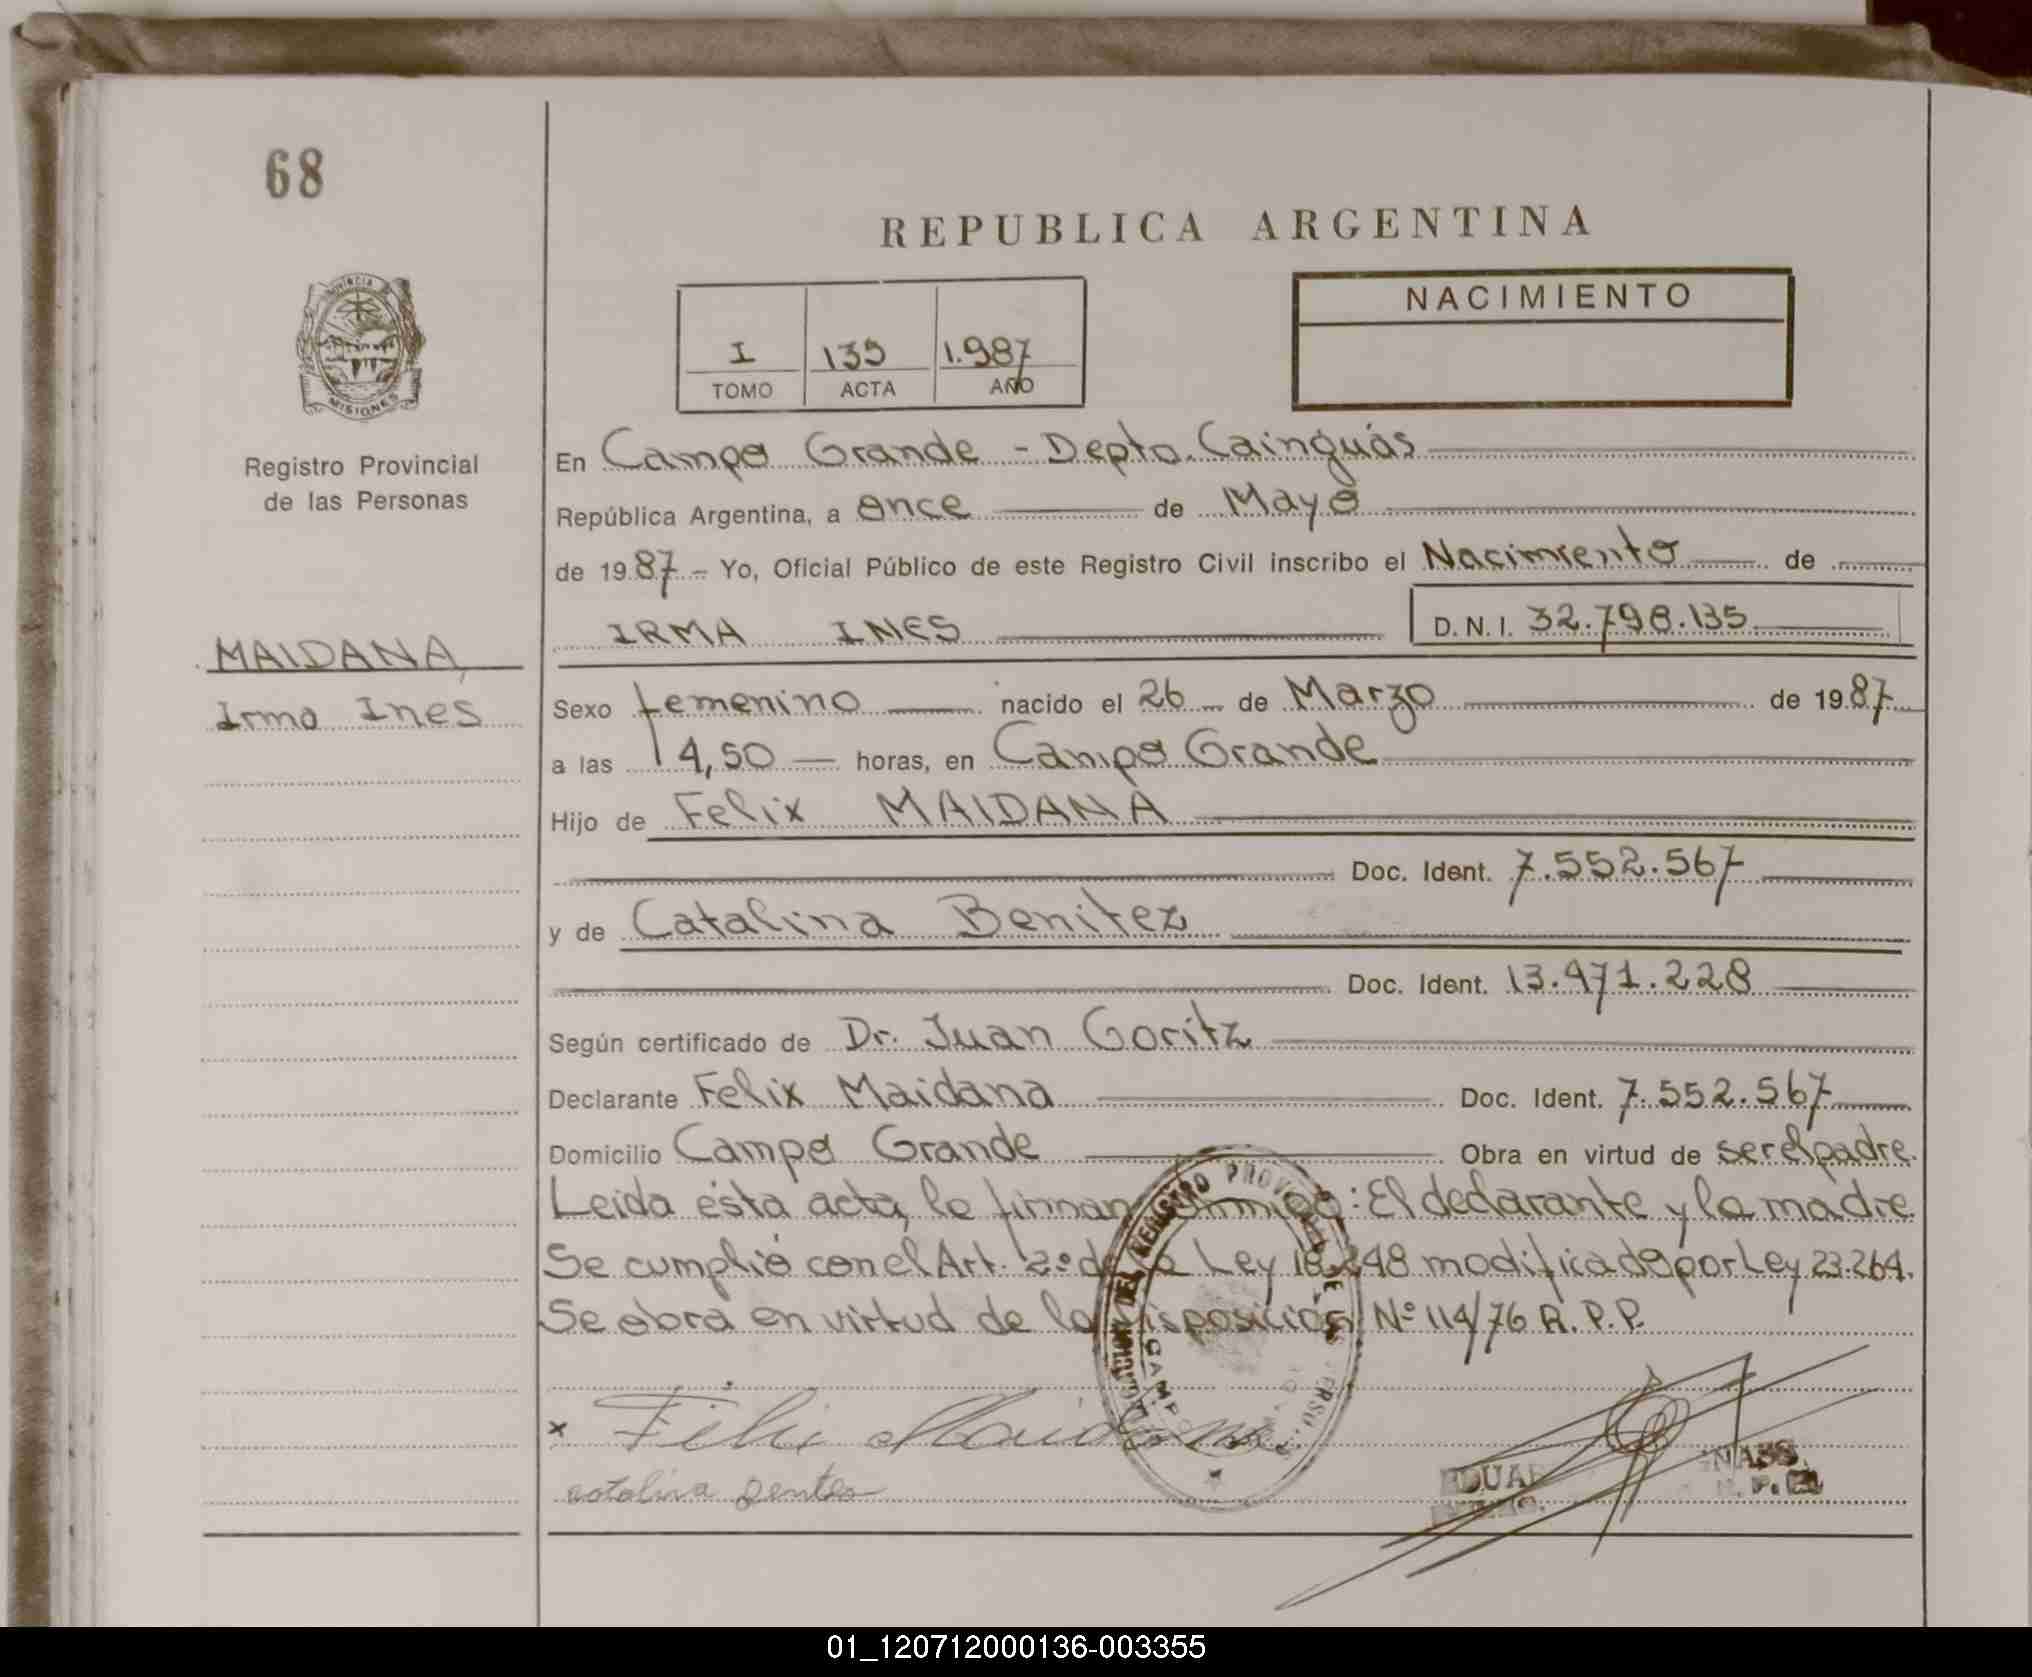 68
REPUBLICA ARGENTINA
PROVINCIA
MISIONES
Registro Provincial
de las Personas
I 135 1.987
TOMO ACTA AÑO
NACIMIENTO
En Campo Grande - Depto. Cainguás
República Argentina, a once de Mayo
de 1987 - Yo, Oficial Público de este Registro Civil inscribo el Nacimiento de
IRMA INES D.N.I. 32.798.135
MAIDANA,
Irma Ines
Sexo femenino nacido el 26 de Marzo de 1987
a las 14,50 horas, en Campo Grande
Hijo de Felix MAIDANA
Doc. Ident. 7.552.567
y de Catalina Benitez
Doc. Ident. 13.471.228
Según certificado de Dr. Juan Goritz
Declarante Felix Maidana Doc. Ident. 7.552.567
Domicilio Campo Grande Obra en virtud de ser el padre.
Leida ésta acta, la firman conmigo: El declarante y la madre.
Se cumplió con el Art. 2º de la Ley 18.248 modificado por Ley 23.264.
Se obra en virtud de la disposición Nº 114/76 R.P.P.
x Felix Maidana
01_120712000136-003355